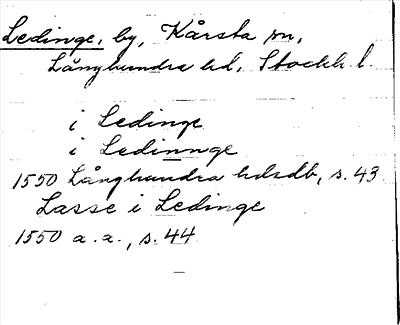 Ledinge, by, Kårsta sn,
Långhundra hd, Stockh. l.
i Ledinge
i Ledinnge
1550 Långhundra hdsdb, s. 43
Lasse i Ledinge
1550 a. a., s. 44